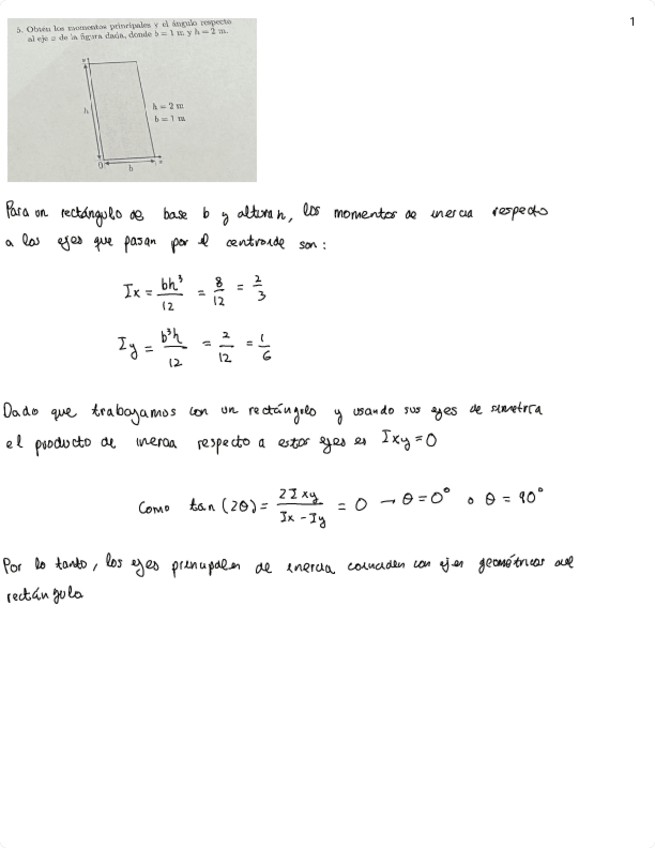 1
5. Obtén los momentos principales y el ángulo respecto
al eje x de la figura dada, donde b = 1 m y h = 2 m.
h
h = 2 m
b = 1 m
0
b
x
Para un rectángulo de base b y altura h, los momentos de inercia respecto
a los ejes que pasan por el centroide son:
Ix = bh³/12 = 8/12 = 2/3
Iy = b³h/12 = 2/12 = 1/6
Dado que trabajamos con un rectángulo y usando sus ejes de simetría
el producto de inercia respecto a estos ejes es Ixy = 0
Como tan(2θ) = 2Ixy/Ix - Iy = 0 → θ = 0° o θ = 90°
Por lo tanto, los ejes principales de inercia coinciden con ejes geométricos del
rectángulo